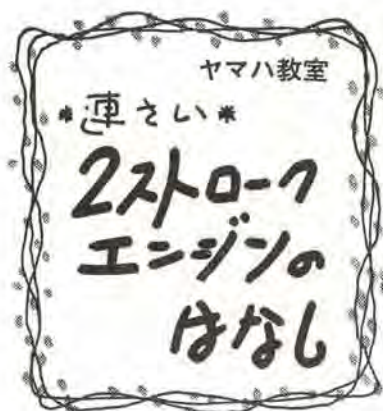 ヤマハ教室
*連さい*
2ストローク
エンジンの
はなし